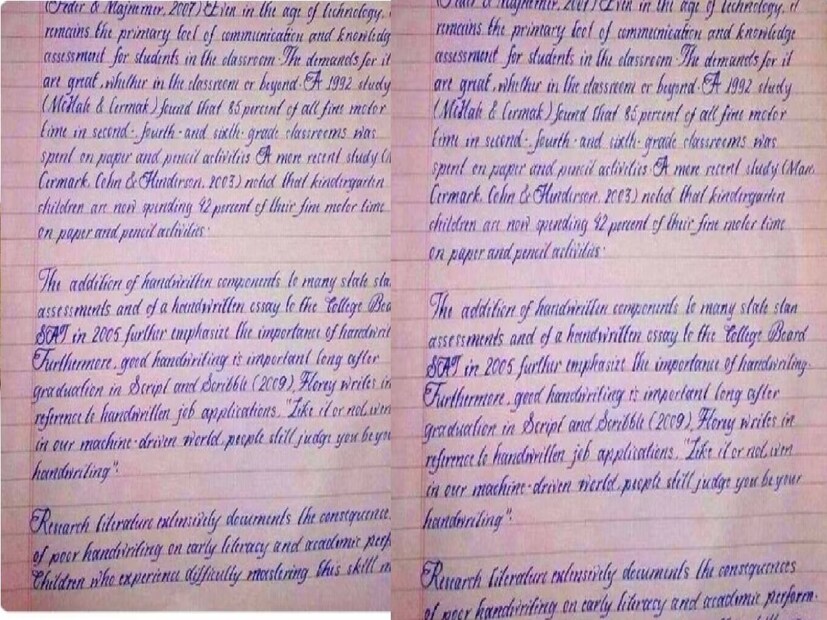 (Feder & Majnemer, 2007) Even in the age of technology, i
remains the primary tool of communication and knowledg
assessment for students in the classroom. The demands for it
are great, whether in the classroom or beyond. A 1992 study
(McHale & Cermak) found that 85 percent of all fine motor
time in second-, fourth- and sixth-grade classrooms was
spent on paper and pencil activities. A more recent study (
Cermark, Cohn & Henderson, 2003) noted that kindergarten
children are now spending 42 percent of their fine motor time
on paper and pencil activities.
The addition of handwritten components to many state sta
assessments and of a handwritten essay to the College Boa
SAT in 2005 further emphasize the importance of handwrit
Furthermore, good handwriting is important long after
graduation in Script and Scribble (2009), Florey writes in
reference to handwritten job applications, "Like it or not, even
in our machine-driven world, people still judge you by you
handwriting".
Research literature extensively documents the consequence
of poor handwriting on early literacy and academic perf
Children who experience difficulty mastering this skill m
(Feder & Majnemer, 2007) Even in the age of technology, it
remains the primary tool of communication and knowledge
assessment for students in the classroom. The demands for it
are great, whether in the classroom or beyond. A 1992 study
(McHale & Cermak) found that 85 percent of all fine motor
time in second-, fourth- and sixth-grade classrooms was
spent on paper and pencil activities. A more recent study (Marr,
Cermark, Cohn & Henderson, 2003) noted that kindergarten
children are now spending 42 percent of their fine motor time
on paper and pencil activities.
The addition of handwritten components to many state stan
assessments and of a handwritten essay to the College Board
SAT in 2005 further emphasize the importance of handwriting.
Furthermore, good handwriting is important long after
graduation in Script and Scribble (2009), Florey writes in
reference to handwritten job applications, "Like it or not, even
in our machine-driven world, people still judge you by your
handwriting".
Research literature extensively documents the consequences
of poor handwriting on early literacy and academic perform-